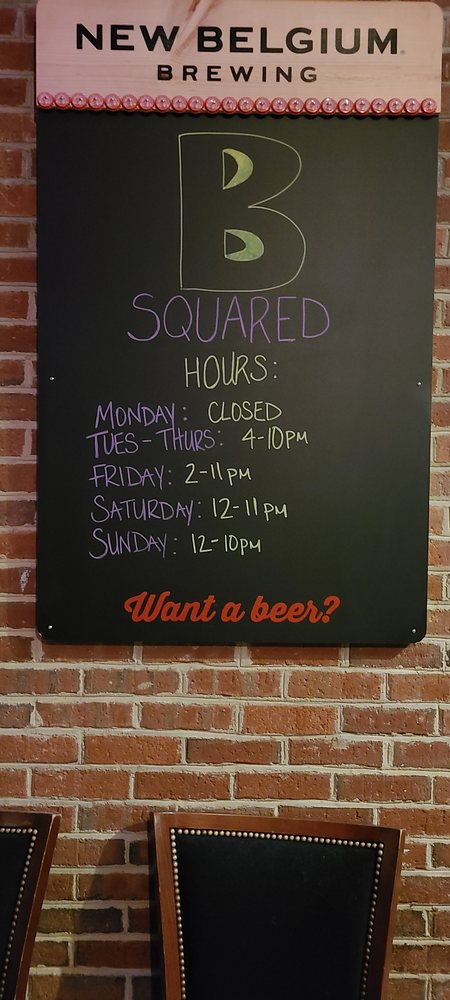 NEW BELGIUM
BREWING
B
SQUARED
HOURS:
MONDAY: CLOSED
TUES-THURS: 4-10PM
FRIDAY: 2-11PM
SATURDAY: 12-11PM
SUNDAY: 12-10PM
Want a beer?